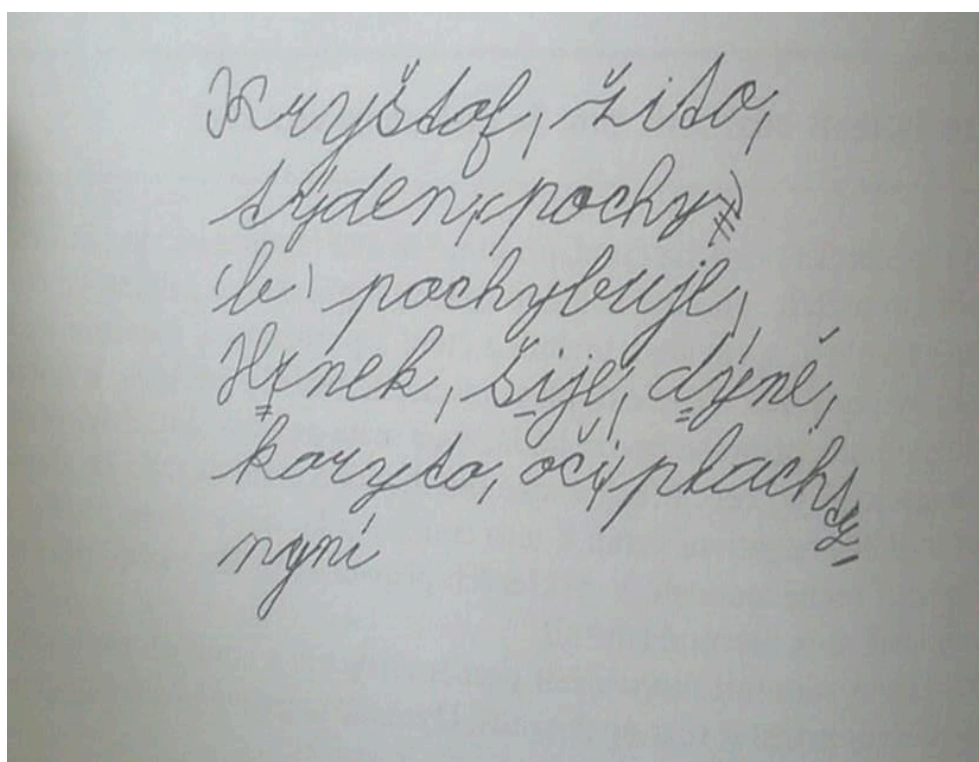 Kryštof, žito,
týden, pochy
(b) pochybuje,
Hrnek, šije, dýně,
koryto, oči, plachty
nyní